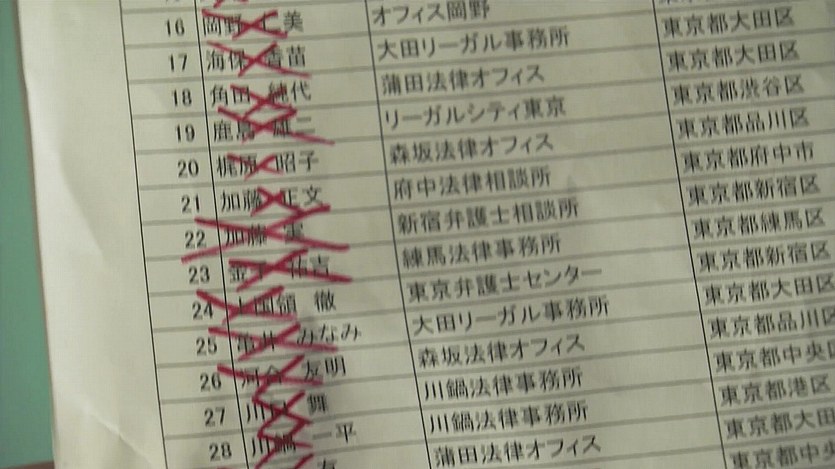 16 岡野 美 オフィス岡野
17 海保 香苗 大田リーガル事務所 東京都大田区
18 角田 純代 蒲田法律オフィス 東京都大田区
19 鹿 雄二 リーガルシティ東京 東京都渋谷区
20 梶原 昭子 森坂法律オフィス 東京都品川区
21 加藤 正文 府中法律相談所 東京都府中市
22 加藤 実 新宿弁護士相談所 東京都新宿区
23 金 吉 練馬法律事務所 東京都練馬区
24 徹 東京弁護士センター 東京都新宿区
25 亀井 みなみ 大田リーガル事務所 東京都大田区
26 河合 友明 森坂法律オフィス 東京都品川区
27 川 舞 川鍋法律事務所 東京都中央区
28 川鍋 一平 川鍋法律事務所 東京都港区
友 蒲田法律オフィス 東京都大田
東京都中央